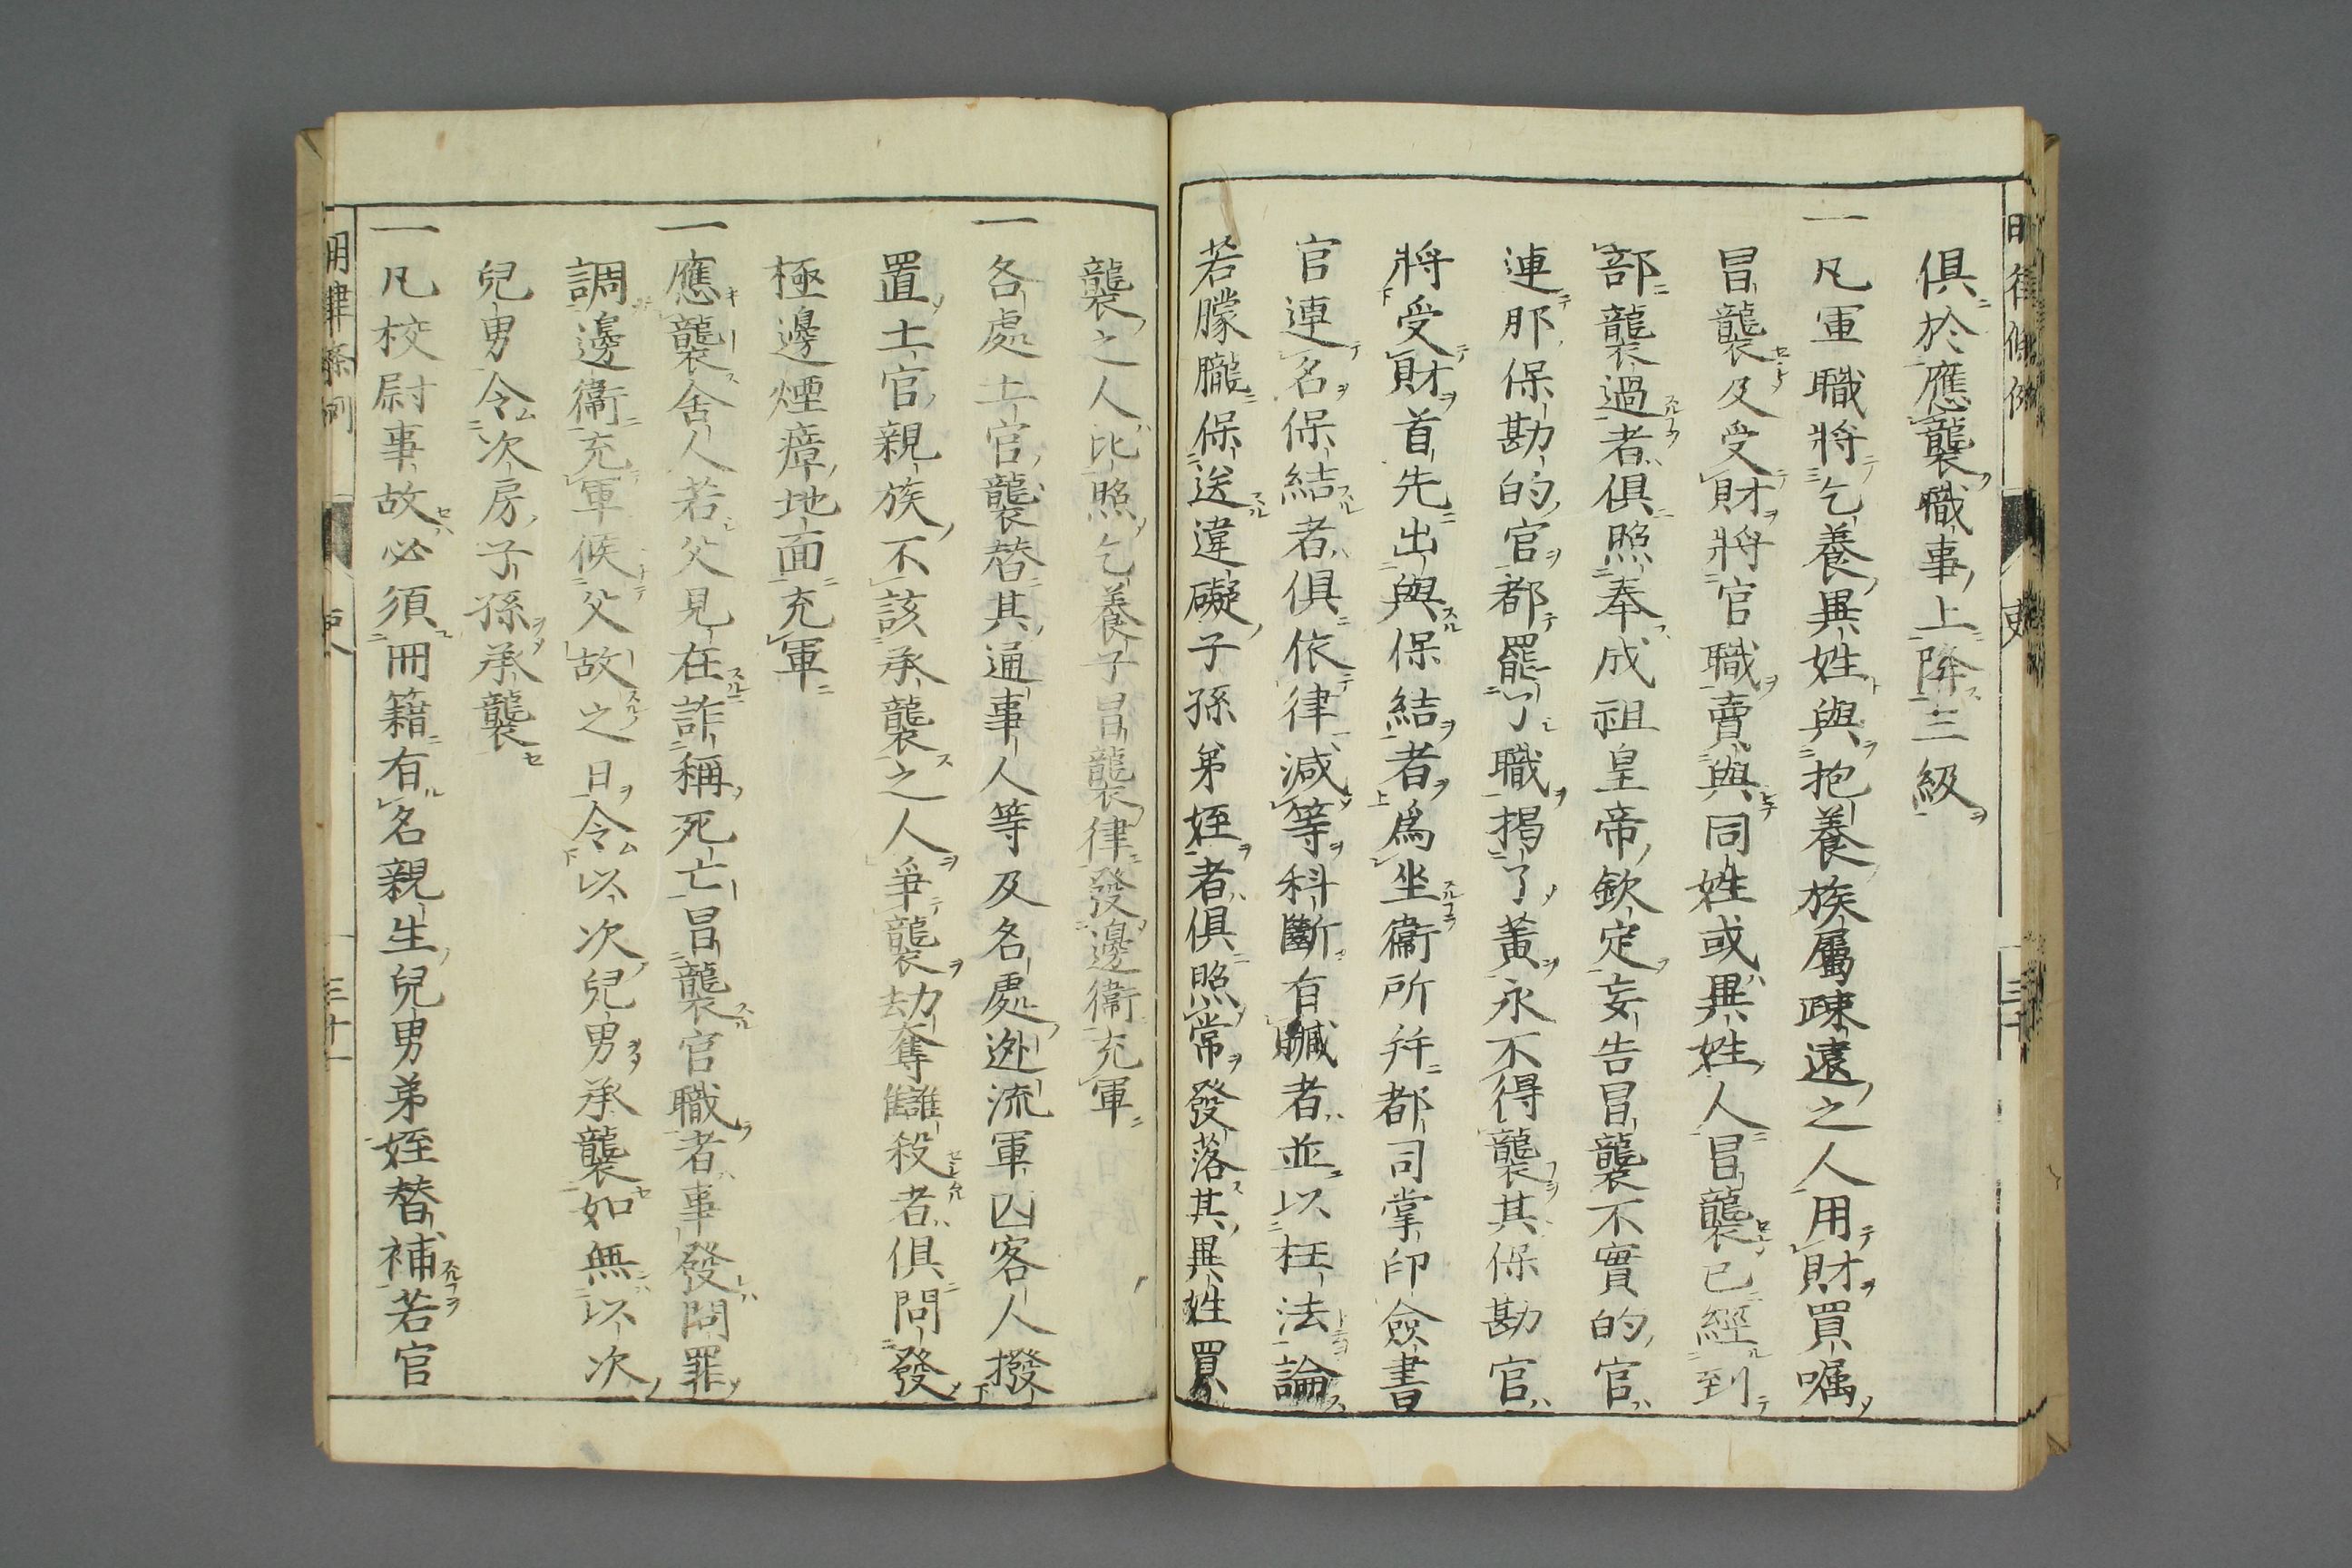 俱於應襲職事上降三級
一凡軍職將乞養異姓與抱養族屬疎遠之人用財買囑
冒襲及受財將官職賣與同姓或異姓人冒襲已經到
部襲過者俱照奉成祖皇帝欽定妄告冒襲不實的官
連那保勘的官都罷了職揭了黃永不得襲其保勘官
將受財首先出與保結者爲坐衞所幷都司掌印僉書
官連名保結者俱依律減等科斷有贓者並以枉法論
若朦朧保送違礙子孫弟姪者俱照常發落其異姓買
襲之人比照乞養子冒襲律發邊衞充軍
一各處土官襲替其通事人等及各處逃流軍囚客人撥
置土官親族不該承襲之人爭襲劫奪讎殺者俱問發
極邊煙瘴地面充軍
一應襲舍人若父見在詐稱死亡冒襲官職者事發問罪
調邊衞充軍候父故之日令以次兒男承襲如無以次
兒男令次房子孫承襲
一凡校尉事故必須冊籍有名親生兒男弟姪替補若官
明律條例
吏
三十一